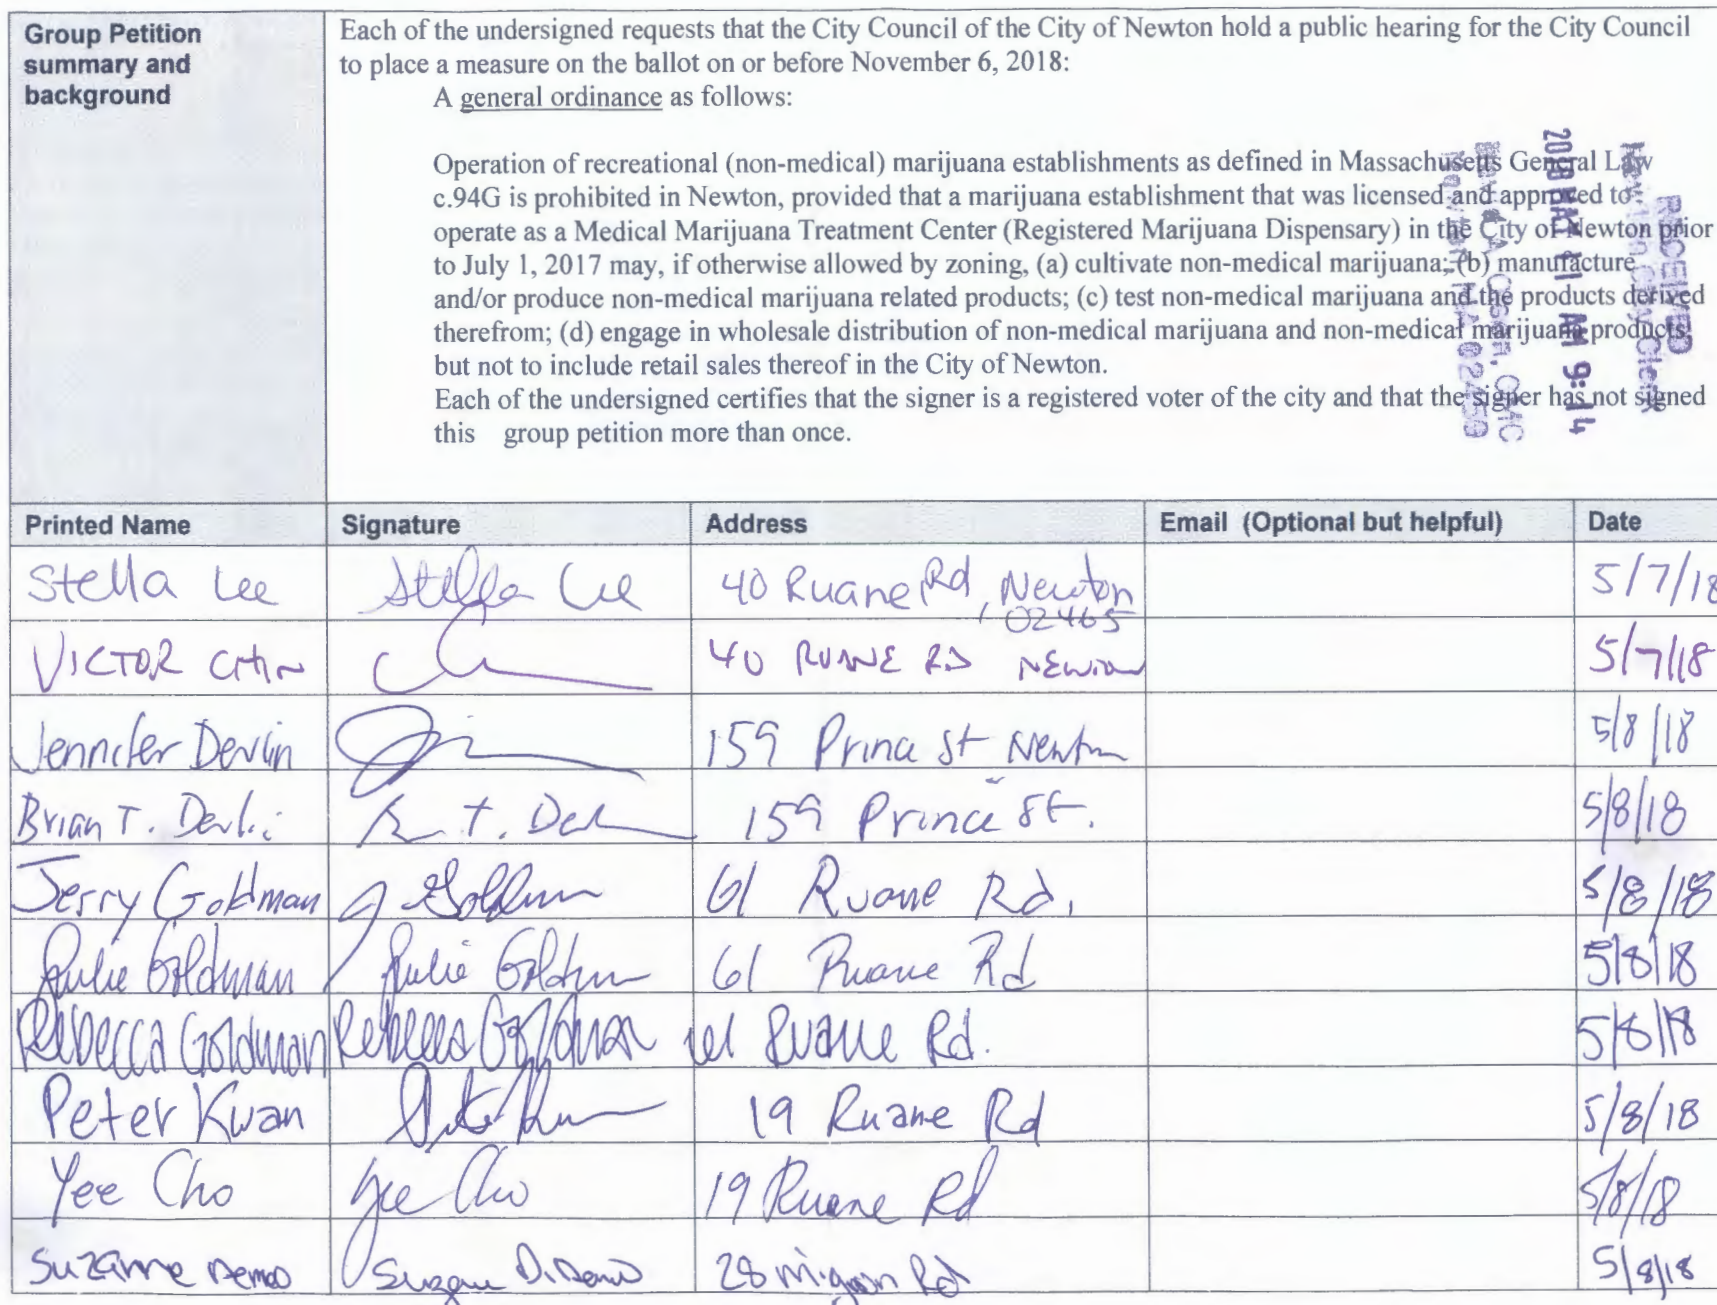 Group Petition
summary and
background
Each of the undersigned requests that the City Council of the City of Newton hold a public hearing for the City Council
to place a measure on the ballot on or before November 6, 2018:
A general ordinance as follows:
Operation of recreational (non-medical) marijuana establishments as defined in Massachusetts General Law
c.94G is prohibited in Newton, provided that a marijuana establishment that was licensed and approved to
operate as a Medical Marijuana Treatment Center (Registered Marijuana Dispensary) in the City of Newton prior
to July 1, 2017 may, if otherwise allowed by zoning, (a) cultivate non-medical marijuana; (b) manufacture
and/or produce non-medical marijuana related products; (c) test non-medical marijuana and the products derived
therefrom; (d) engage in wholesale distribution of non-medical marijuana and non-medical marijuana products,
but not to include retail sales thereof in the City of Newton.
Each of the undersigned certifies that the signer is a registered voter of the city and that the signer has not signed
this group petition more than once.
RECEIVED
Newton City Clerk
2018 MAY 11 AM 9:14
A. Olson, CMC
Newton, MA 02459
Printed Name Signature Address Email (Optional but helpful) Date
Stella Lee Stella Lee 40 Ruane Rd, Newton 5/7/18
02465
VICTOR CHIN 40 RUANE RD NEWTON 5/7/18
Jennifer Devlin 159 Prince St Newton 5/8/18
Brian T. Devlin T. 159 Prince St. 5/8/18
Jerry Goldman J Goldman 61 Ruane Rd. 5/8/18
Julie Goldman Julie Goldman 61 Ruane Rd 5/8/18
Rebecca Goldman Rebecca Goldman 61 Ruane Rd. 5/8/18
Peter Kwan 19 Ruane Rd 5/8/18
Yee Cho Yee Cho 19 Ruane Rd 5/8/18
Suzanne 28 Mignon Rd 5/8/18